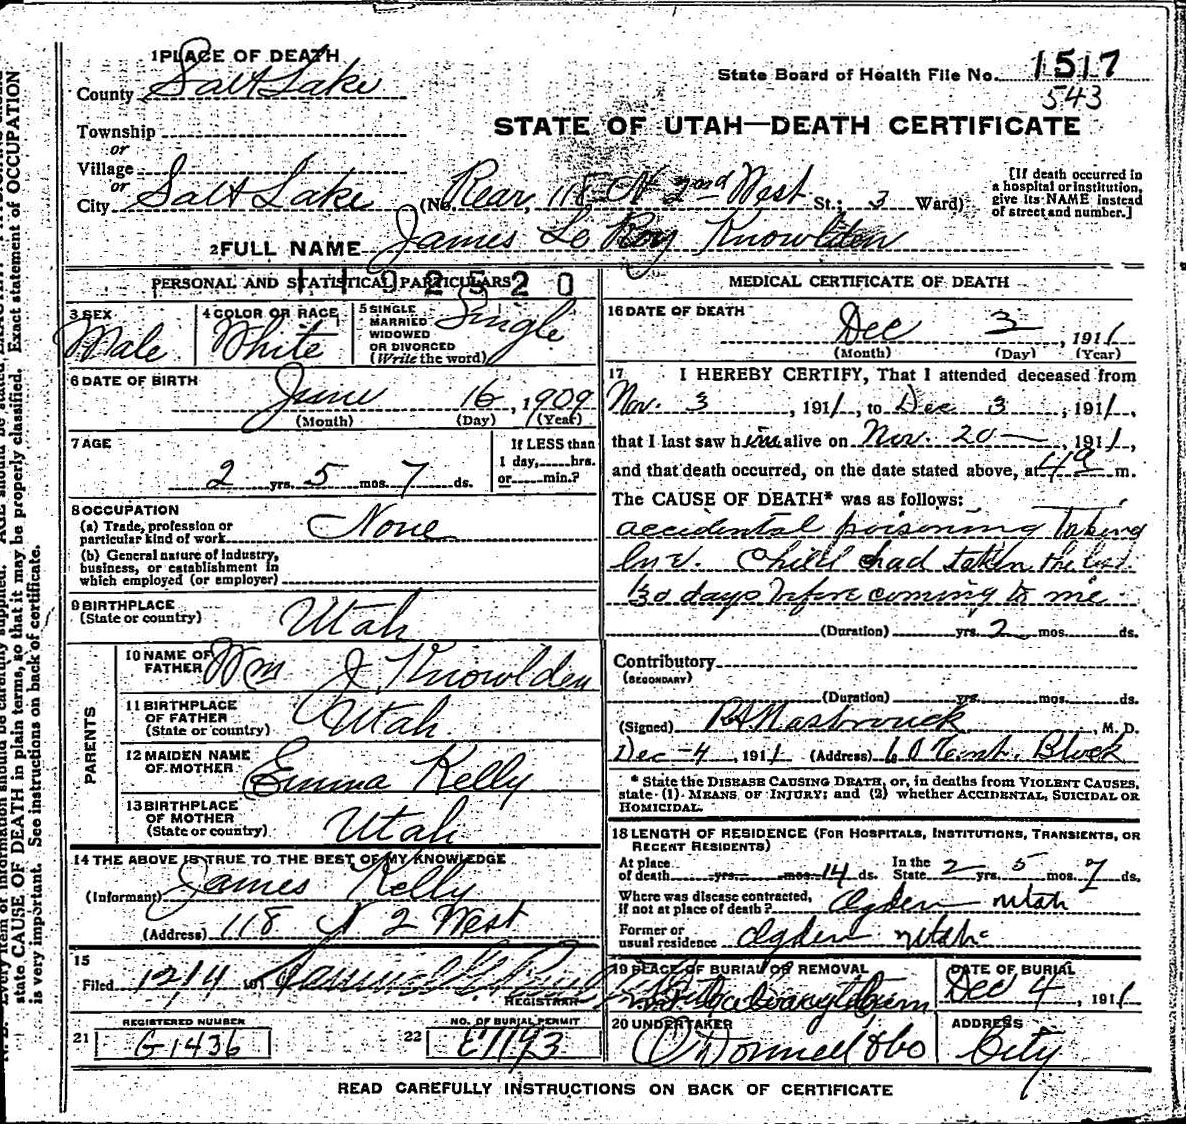 1 PLACE OF DEATH
County Salt Lake
State Board of Health File No. 1517
543
Township
or
Village
or
STATE OF UTAH—DEATH CERTIFICATE
City Salt Lake (No. Rear, 118 N 2nd West St.; 3 Ward)
[If death occurred in
a hospital or institution,
give its NAME instead
of street and number.]
2 FULL NAME James Le Roy Knowlton
PERSONAL AND STATISTICAL PARTICULARS
1192520
3 SEX
Male
4 COLOR OR RACE
White
5 SINGLE
MARRIED
WIDOWED
OR DIVORCED
(Write the word)
Single
6 DATE OF BIRTH
June 16, 1909
(Month) (Day) (Year)
7 AGE
2 yrs. 5 mos. 7 ds.
If LESS than
1 day, hrs.
or min.?
8 OCCUPATION
(a) Trade, profession or
particular kind of work None
(b) General nature of industry,
business, or establishment in
which employed (or employer)
9 BIRTHPLACE
(State or country) Utah
PARENTS
10 NAME OF
FATHER Wm J Knowlden
11 BIRTHPLACE
OF FATHER
(State or country) Utah
12 MAIDEN NAME
OF MOTHER Emma Kelly
13 BIRTHPLACE
OF MOTHER
(State or country) Utah
14 THE ABOVE IS TRUE TO THE BEST OF MY KNOWLEDGE
(Informant) James Kelly
(Address) 118 N 2 West
15
Filed 12/4 191
REGISTRAR
21 REGISTERED NUMBER
G1436
22 NO. OF BURIAL PERMIT
E1193
MEDICAL CERTIFICATE OF DEATH
16 DATE OF DEATH
Dec 3, 1911
(Month) (Day) (Year)
17 I HEREBY CERTIFY, That I attended deceased from
Nov. 3, 1911, to Dec 3, 1911,
that I last saw him alive on Nov. 20, 1911,
and that death occurred, on the date stated above, at 4 a m.
The CAUSE OF DEATH* was as follows:
accidental poisoning Taking
Child had taken the
30 days before coming to me
(Duration) yrs. 2 mos. ds.
Contributory
(SECONDARY)
(Duration) yrs. mos. ds.
(Signed) Hasbrouck, M. D.
Dec-4, 1911 (Address) Block
* State the DISEASE CAUSING DEATH, or, in deaths from VIOLENT CAUSES,
state (1) MEANS OF INJURY; and (2) whether ACCIDENTAL, SUICIDAL OR
HOMICIDAL.
18 LENGTH OF RESIDENCE (FOR HOSPITALS, INSTITUTIONS, TRANSIENTS, OR
RECENT RESIDENTS)
At place
of death yrs. mos. 14 ds. In the
State 2 yrs. 5 mos. 7 ds.
Where was disease contracted,
if not at place of death? Ogden Utah
Former or
usual residence Ogden Utah
19 PLACE OF BURIAL OR REMOVAL
DATE OF BURIAL
Dec 4, 1911
20 UNDERTAKER
O'Donnell & Co
ADDRESS
City
READ CAREFULLY INSTRUCTIONS ON BACK OF CERTIFICATE
state CAUSE OF DEATH in plain terms, so that it may be properly classified. Exact statement of OCCUPATION
is very important. See instructions on back of certificate.